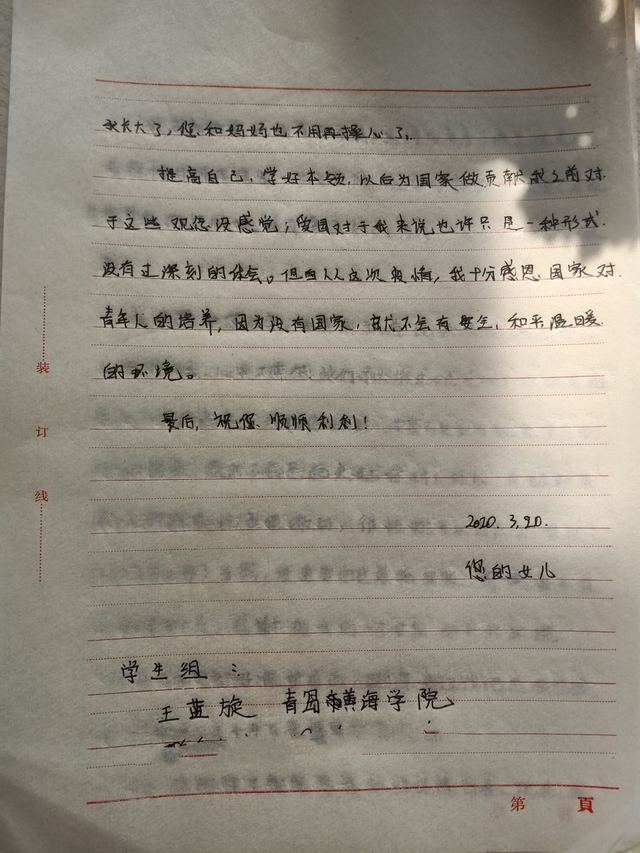 我长大了，您和妈妈也不用再操心了。
提高自己，学好本领，以后为国家做贡献我之前对
于这些观念没感觉；爱国对于我来说也许只是一种形式
没有过深刻的体会。但自从这次疫情，我十分感恩国家对
青年人的培养，因为没有国家，就不会有安全、和平温暖
的环境。
最后，祝您顺顺利利！
2020.3.20.
您的女儿
学生组：
王蓝旋 青岛黄海学院
装
订
线
第 頁